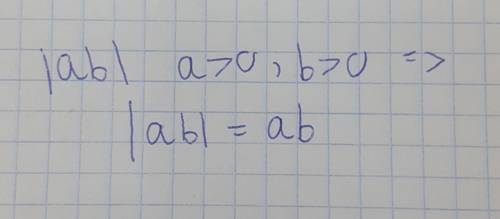 |ab| a>0, b>0 =>
|ab| = ab